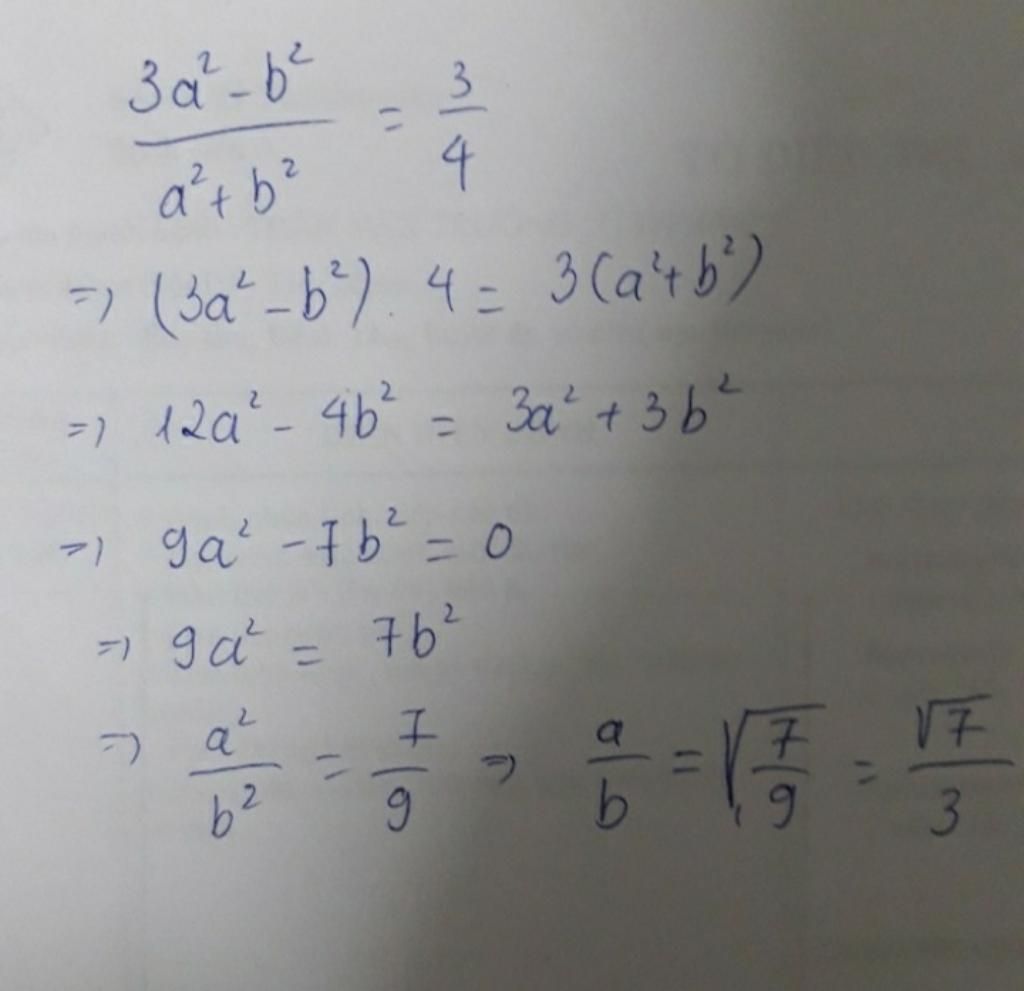 (3a² - b²)/(a² + b²) = 3/4
=> (3a² - b²) . 4 = 3(a² + b²)
=> 12a² - 4b² = 3a² + 3b²
=> 9a² - 7b² = 0
=> 9a² = 7b²
=> a²/b² = 7/9 => a/b = √(7/9) = √7/3